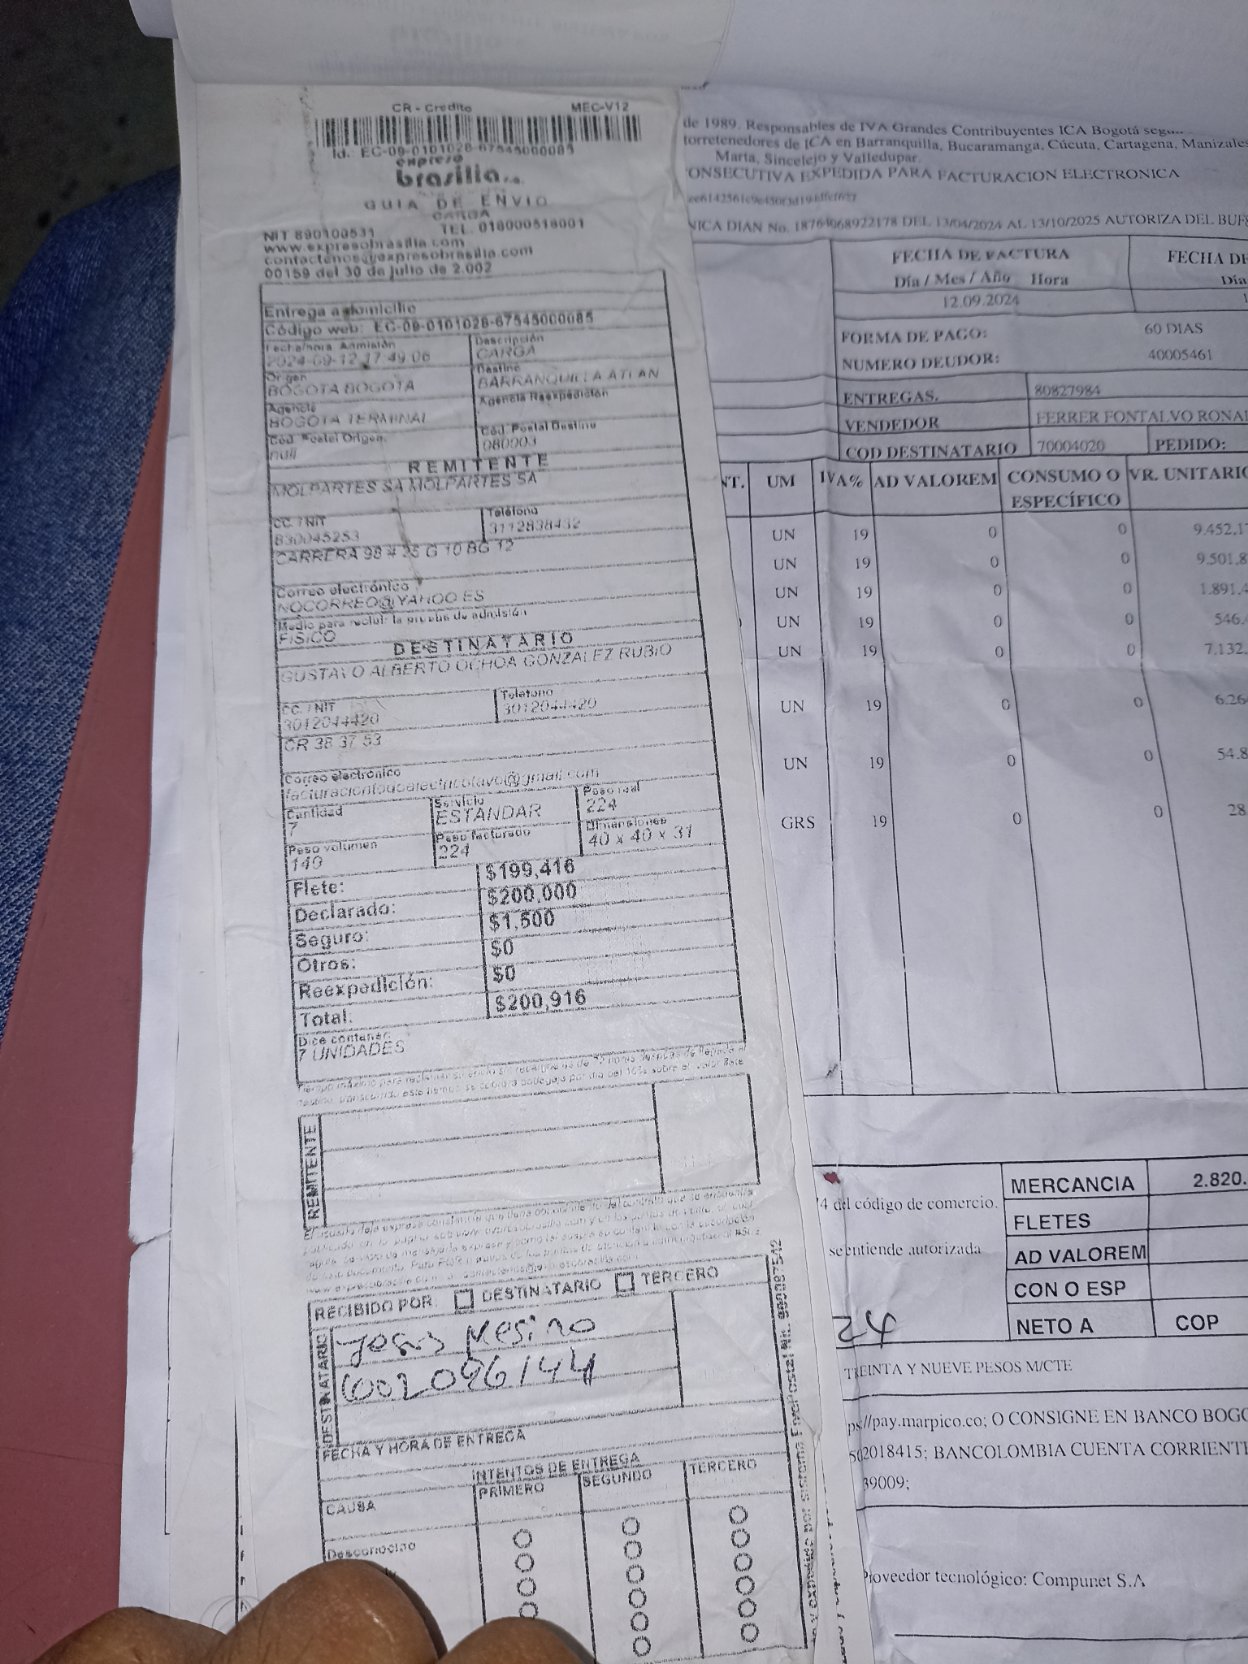 CR - Credito MEC-V12
Id.: EC-09-0101028-67545000085
expreso
brasilia s.a.
GUIA DE ENVIO
CARGA
NIT 890100531 TEL. 018000518001
www.expresobrasilia.com
contactenos@expresobrasilia.com
00159 del 30 de julio de 2.002
Entrega a domicilio
Código web: EC-09-0101028-67545000085
Fecha/hora Admisión Descripción
2024-09-12 17:49:06 CARGA
Origen Destino
BOGOTA BOGOTA BARRANQUILLA ATLAN
Agencia Agencia Reexpedición
BOGOTA TERMINAL
Cód. Postal Origen Cód. Postal Destino
null 080003
REMITENTE
MOLPARTES SA MOLPARTES SA
CC. / NIT Teléfono
830045253 3112838432
CARRERA 98 # 25 G 10 BG 12
Correo electrónico
NOCORREO@YAHOO.ES
Medio para recibir la prueba de admisión
FISICO
DESTINATARIO
GUSTAVO ALBERTO OCHOA GONZALEZ RUBIO
CC. / NIT Teléfono
3012044420 3012044420
CR 38 37 53
Correo electrónico
Cantidad Servicio Peso real
7 ESTANDAR 224
Peso volumen Peso facturado Dimensiones
149 224 40 x 40 x 31
Flete: $199,416
Declarado: $200,000
Seguro: $1,500
Otros: $0
Reexpedición: $0
Total: $200,916
Dice contener:
7 UNIDADES
REMITENTE
RECIBIDO POR DESTINATARIO TERCERO
DESTINATARIO
Jesus Mesino
1002096144
FECHA Y HORA DE ENTREGA
INTENTOS DE ENTREGA
CAUSA PRIMERO SEGUNDO TERCERO
Desconocido
de 1989. Responsables de IVA Grandes Contribuyentes ICA Bogotá
torretenedores de ICA en Barranquilla, Bucaramanga, Cúcuta, Cartagena, Manizales
Marta, Sincelejo y Valledupar.
ONSECUTIVA EXPEDIDA PARA FACTURACION ELECTRONICA
NICA DIAN No. 18764068922178 DEL 13/04/2024 AL 13/10/2025 AUTORIZA DEL BUF
FECHA DE FACTURA FECHA DE
Día / Mes / Año Hora Día
12.09.2024 1
FORMA DE PAGO: 60 DIAS
NUMERO DEUDOR: 40005461
ENTREGAS. 80827984
VENDEDOR FERRER FONTALVO RONAL
COD DESTINATARIO 70004020 PEDIDO:
NT. UM IVA% AD VALOREM CONSUMO O ESPECÍFICO VR. UNITARIO
UN 19 0 0 9.452,1
UN 19 0 0 9.501,8
UN 19 0 0 1.891,4
UN 19 0 0 546,
UN 19 0 0 7.132,
UN 19 0 0 6.26
UN 19 0 0 54.8
GRS 19 0 0 28
4 del código de comercio.
se entiende autorizada
24
MERCANCIA 2.820.
FLETES
AD VALOREM
CON O ESP
NETO A COP
TREINTA Y NUEVE PESOS M/CTE
ps//pay.marpico.co; O CONSIGNE EN BANCO BOGO
502018415; BANCOLOMBIA CUENTA CORRIENTE
39009;
Proveedor tecnológico: Compunet S.A